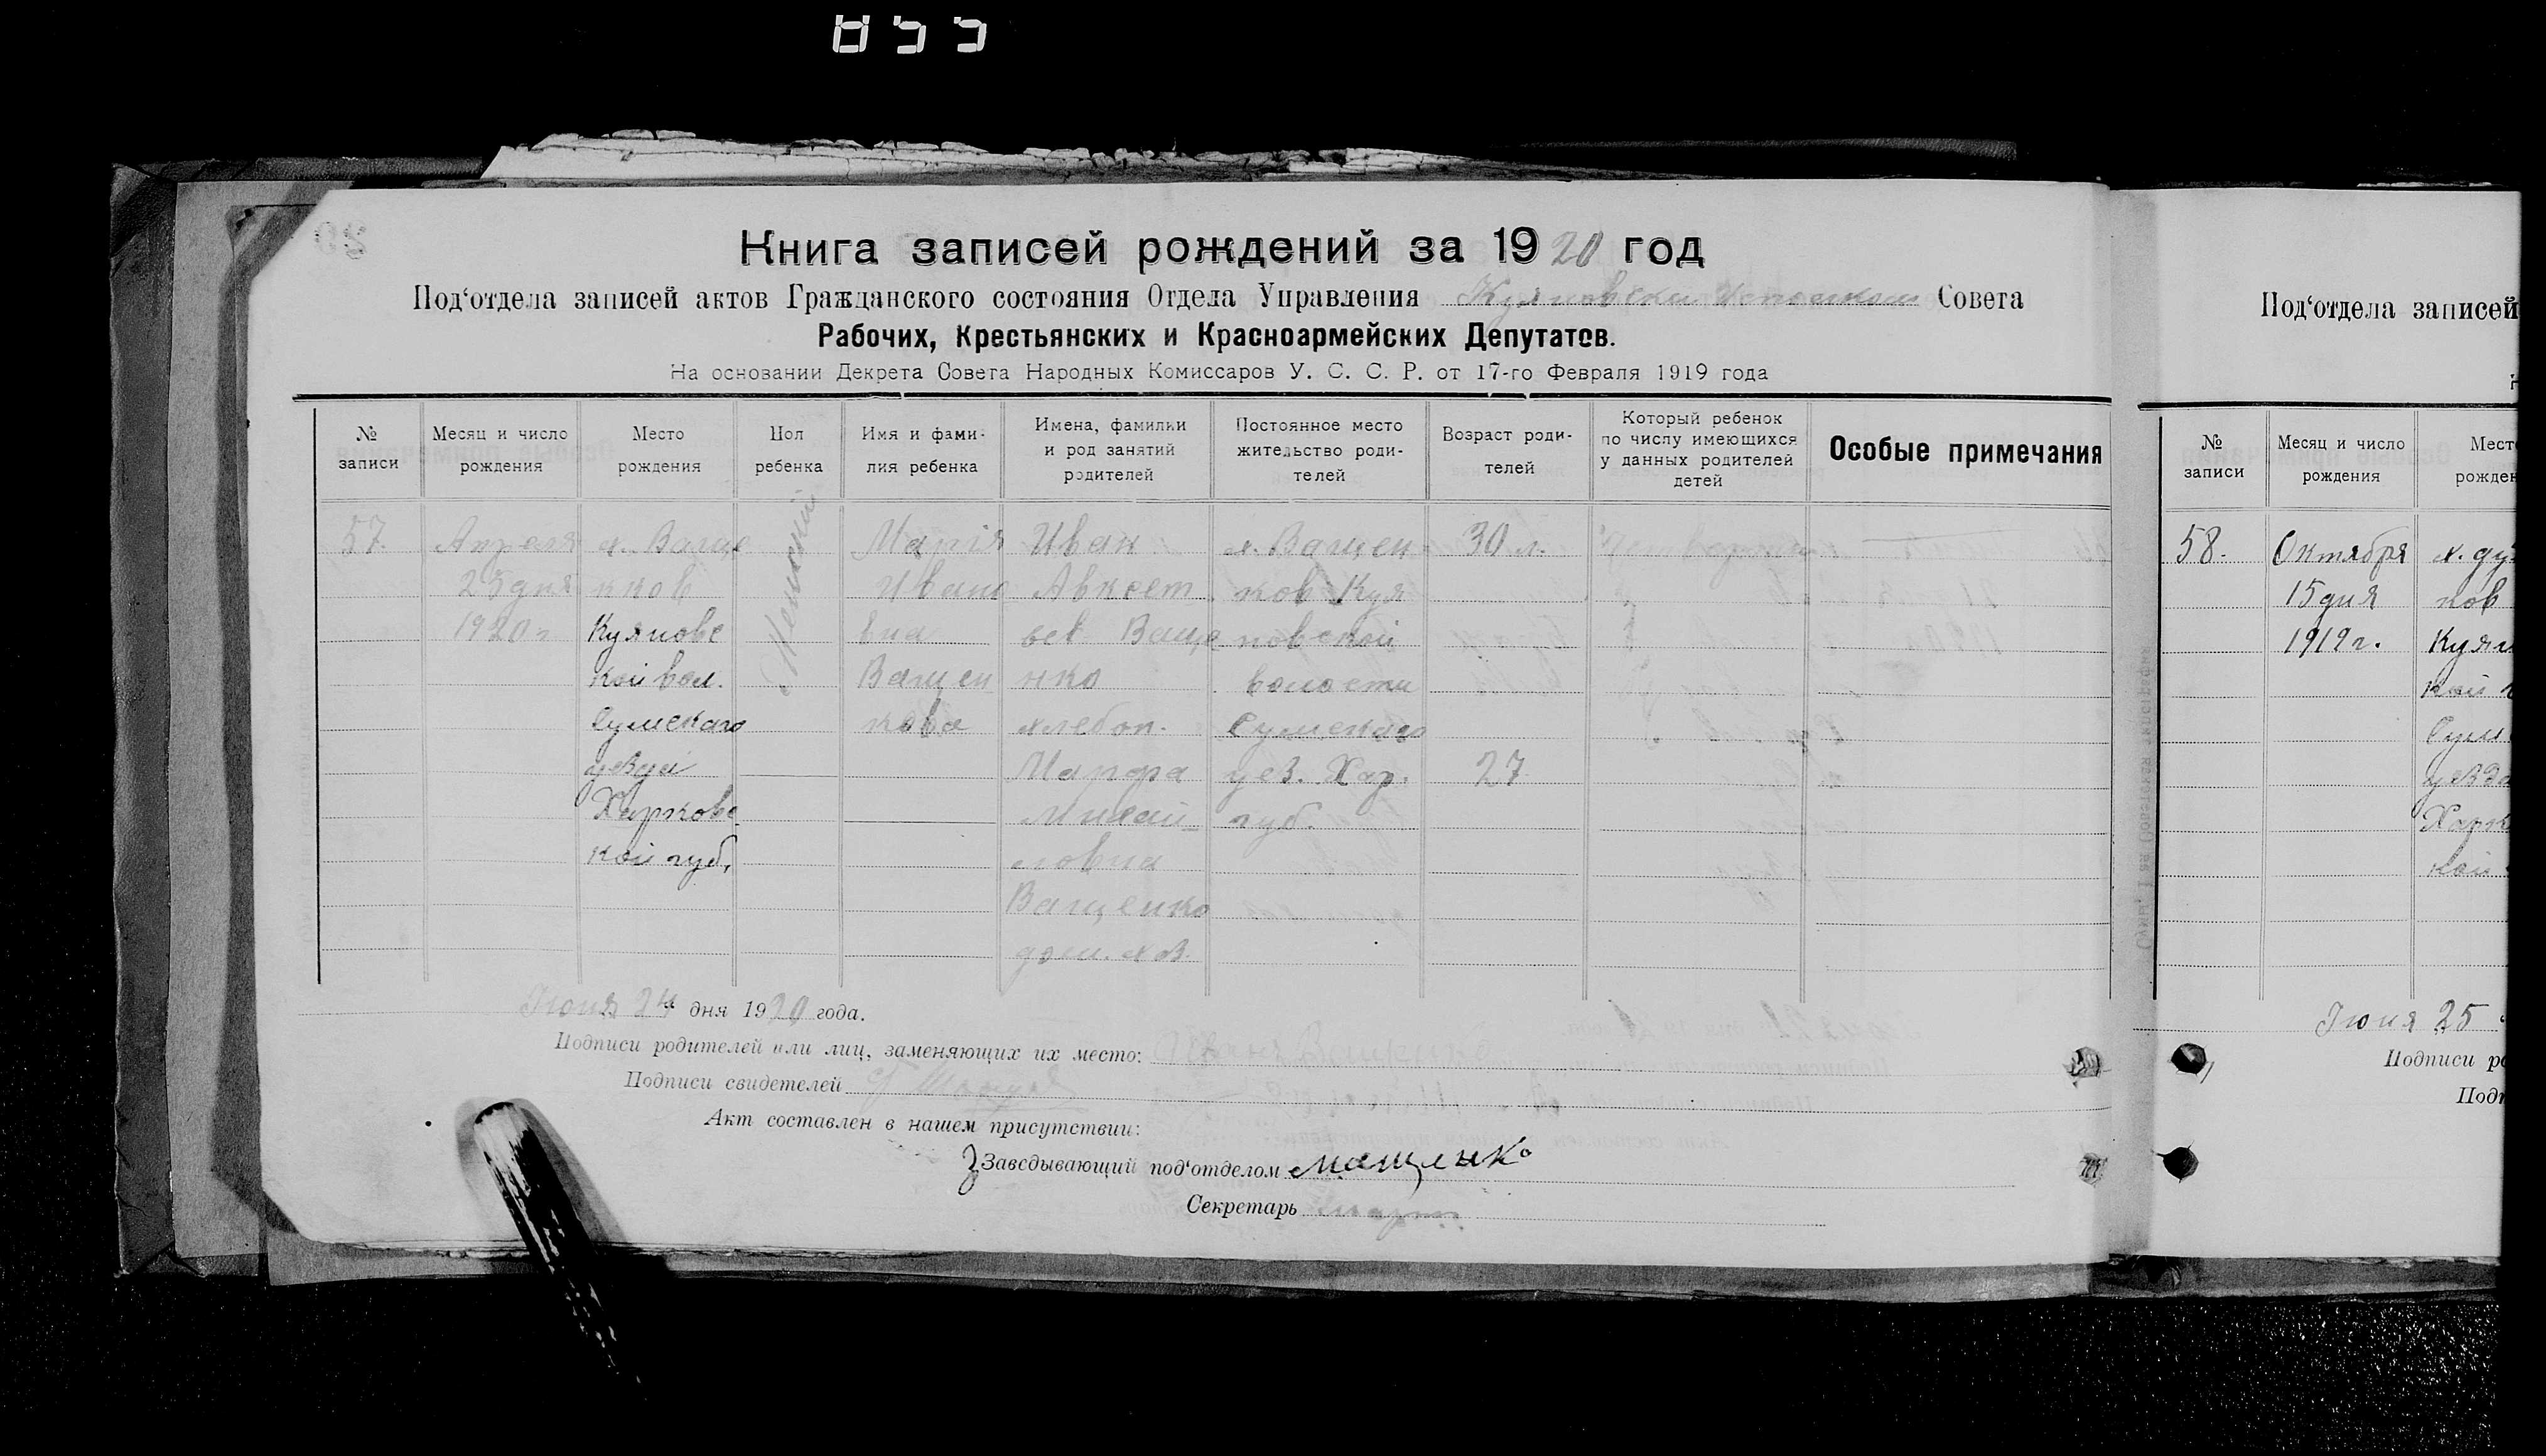 855
Книга записей рождений за 1920 год
Под‘отдела записей актов Гражданского состояния Отдела Управления Куяновски Исполком Совета
Рабочих, Крестьянских и Красноармейских Депутатов.
На основании Декрета Совета Народных Комиссаров У. С. С. Р. от 17-го Февраля 1919 года
№ записи
Месяц и число рождения
Место рождения
Пол ребенка
Имя и фами-
лия ребенка
Имена, фамилии
и род занятий
родителей
Постоянное место
жительство роди-
телей
Возраст роди-
телей
Который ребенок
по числу имеющихся
у данных родителей
детей
Особые примечания
57.
Апреля
25 дня
1920 г
х. Ваще
нков
Куяновс
кой вол.
Сумскаго
уезда
Харковс
кой губ.
Женский
Марія
Ивано
вна
Ващен
кова
Иван
Авксет
вев Ваще
нко
хлебоп.
Марфа
Михай-
ловна
Ващенко
дом. хоз.
х. Ващен
ков Куя
новской
волости
Сумскаго
уез. Хар.
губ.
30 л.
27
Июня 24 дня 1920 года.
Подписи родителей или лиц, заменяющих их место:
Подписи свидетелей
Акт составлен в нашем присутствии:
Заведывающий под‘отделом
Секретарь
Под‘отдела записей
№ записи
Месяц и число рождения
Мест
рожден
58.
Октября
15 дня
1919 г.
х. ду
ков
Куян
кой
Сум
уезда
Харк
кой
Июня 25
Подписи ро
Подп